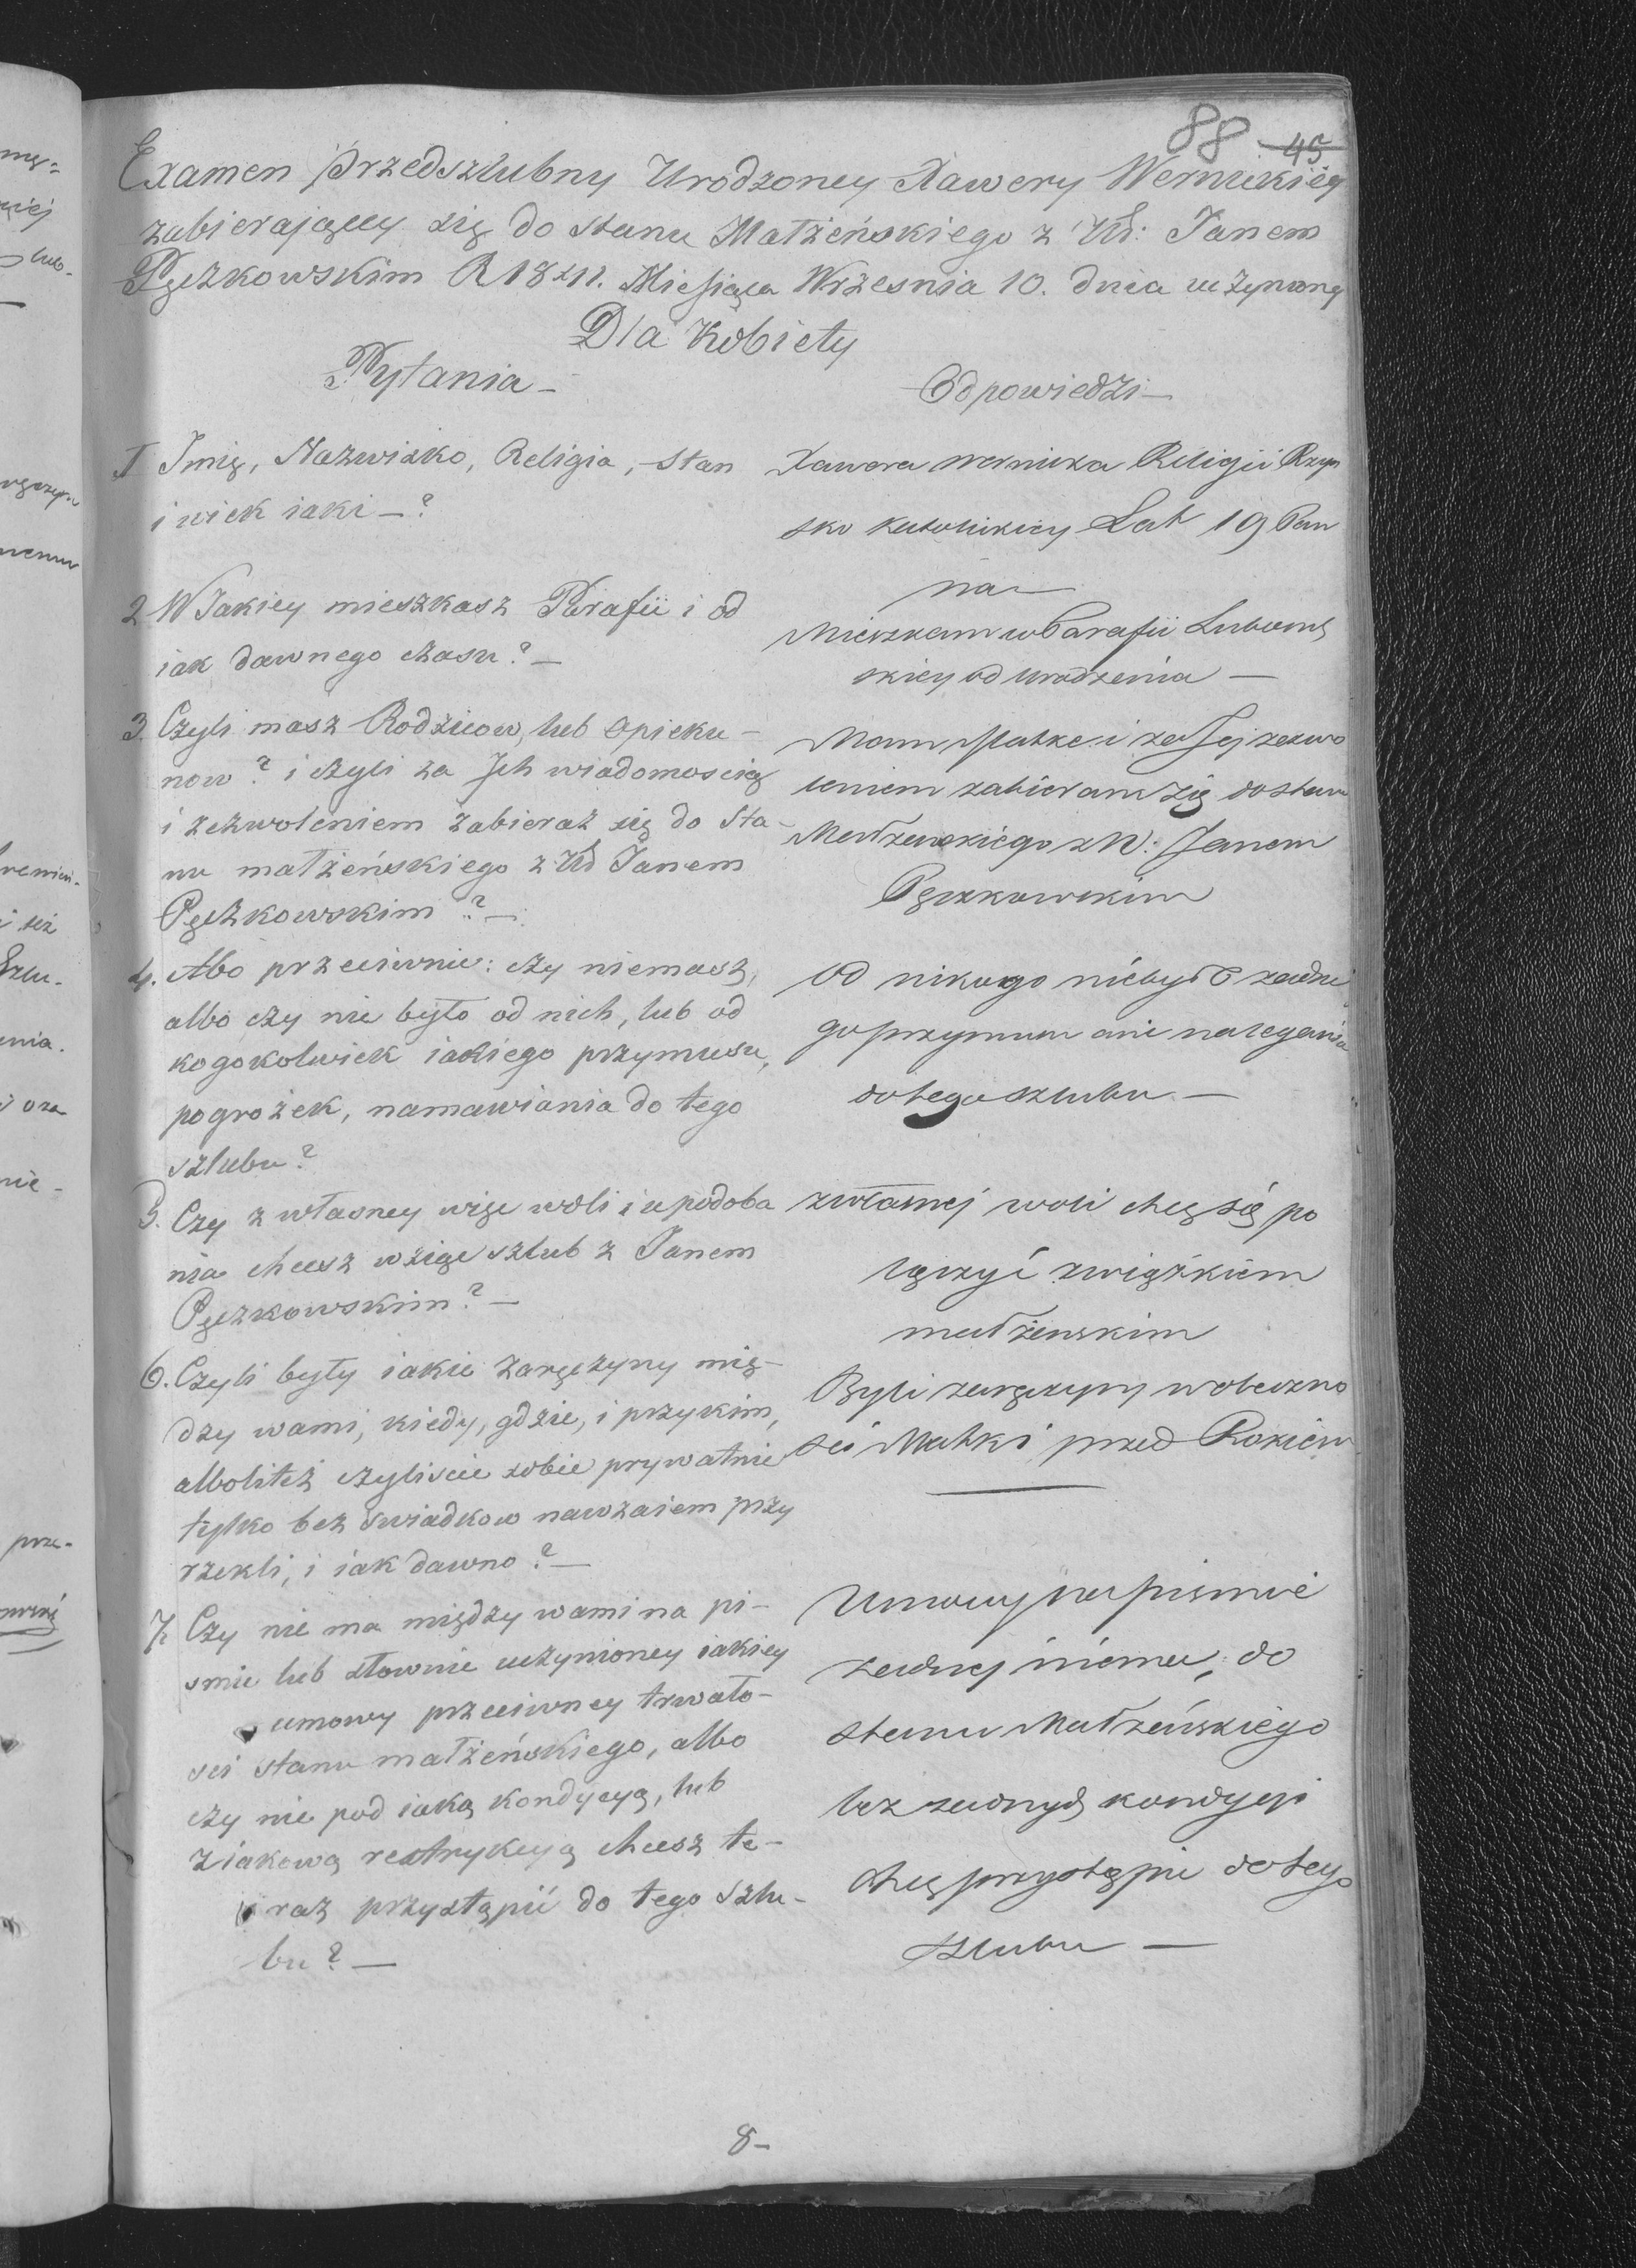 88 45
Examen Przedszlubny Urodzoney Xawery Wernickiey
zabierającey się do stanu Małżeńskiego z Uł: Janem
Pęczkowskim R 1841. Miesiąca Wrzesnia 10. dnia uczyniony
Dla Kobiety
Pytania –
1 Imię, Nazwisko, Religia, Stan
i wiek iaki – ?
2 W Jakiey mieszkasz Parafii i od
iak dawnego czasu? –
3. Czyli masz Rodziców, lub opieku-
now? i czyli za Ich wiadomoscią
i zezwoleniem zabierasz się do Sta-
nu małżeńskiego z Uł Janem
Pęczkowskim? –
4. Abo przeciwnie: czy niemasz,
albo czy nie było od nich, lub od
kogokolwiek iakiego przymusu,
pogrożek, namawiania do tego
szlubu?
5. Czy z własney więc woli i upodoba
nia chcesz wziąć szlub z Janem
Pęczkowskim? –
6. Czyli były iakie zaręczyny mię-
dzy wami, kiedy, gdzie, i przy kim,
albolitéż czyliscie sobie prywatnie
tylko bez swiadkow nawzaiem przy
rzekli, i iak dawno? –
7. Czy nie ma między wami na pi-
smie lub słownie uczynioney iakiey
umowy przeciwney trwało-
sci stanu małżeńskiego, albo
czy nie pod iaką kondycyą, lub
z iakową restrykcyą chcesz te-
raz przystąpić do tego Szlu-
bu? –
Odpowiedzi –
Xawera Wernicka Religii Rzym
sko Katolickiey Lat 19 Pan
na –
Mieszkam w Parafii Luboml
skiey od urodzenia –
Mam Matkę i za Jej zezwo
leniem zabieram się do stanu
Małżenskiego z W: Janem
Pęczkowskim
Od nikogo niebyło żadne
go przymusu ani nalegania
do tego szlubu –
z własnej woli chcę się po
łączyć związkiem
małżenskim
Byli zaręczyny w obeczno
sci Matki przed Rokiem
Umowy na pismie
żadnej niema, do
stanu Małżeńskiego
bez żadnych kondycji
chcę przystąpic do tego
szlubu –
8 –